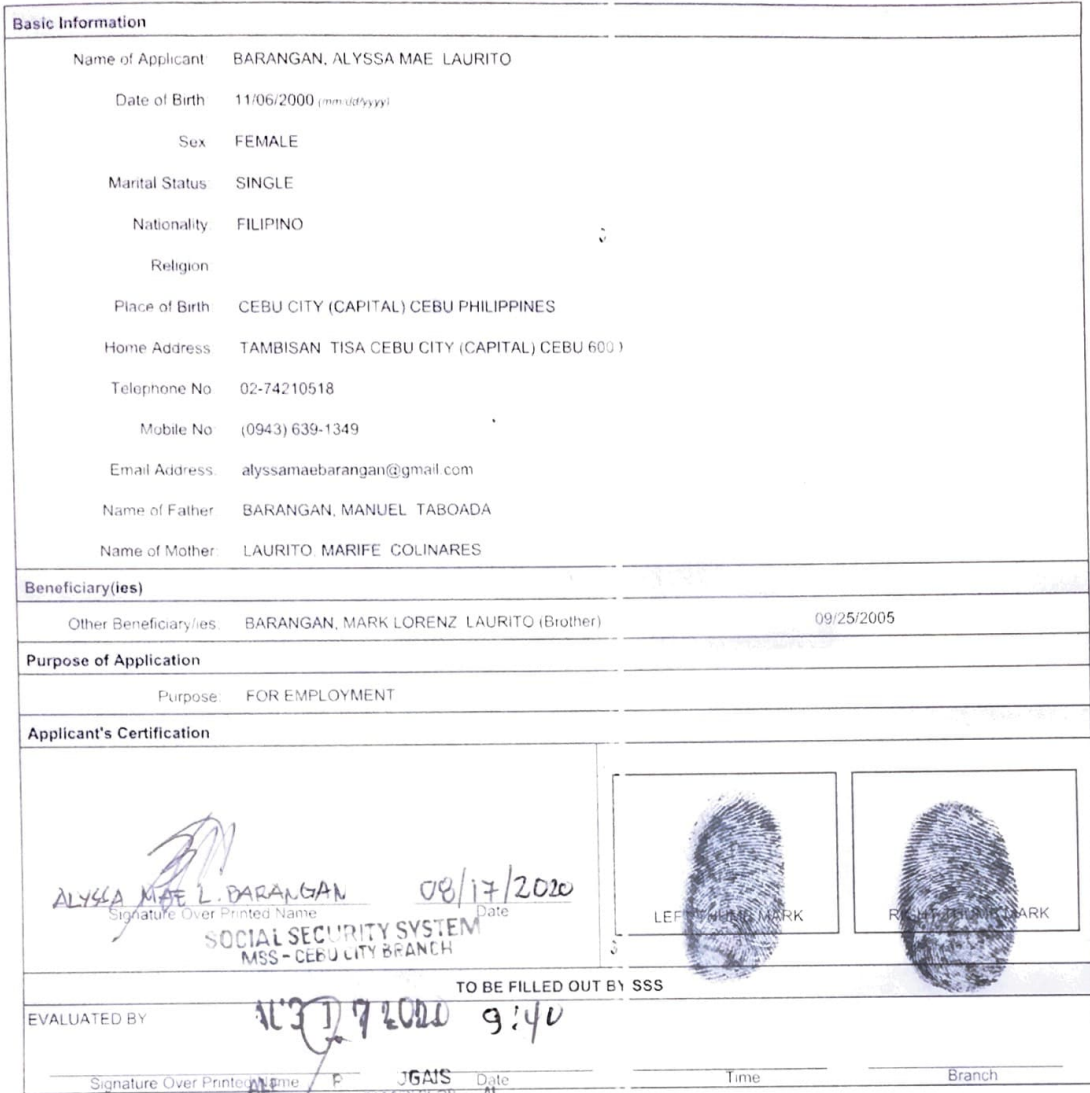 Basic Information
Name of Applicant: BARANGAN, ALYSSA MAE LAURITO
Date of Birth 11/06/2000 (mm/dd/yyyy)
Sex FEMALE
Marital Status: SINGLE
Nationality: FILIPINO
Religion
Place of Birth CEBU CITY (CAPITAL) CEBU PHILIPPINES
Home Address TAMBISAN TISA CEBU CITY (CAPITAL) CEBU
Telephone No 02-74210518
Mobile No (0943) 639-1349
Email Address: alyssamaebarangan@gmail.com
Name of Father BARANGAN, MANUEL TABOADA
Name of Mother: LAURITO, MARIFE COLINARES
Beneficiary(ies)
Other Beneficiary/ies: BARANGAN, MARK LORENZ LAURITO (Brother) 09/25/2005
Purpose of Application
Purpose: FOR EMPLOYMENT
Applicant's Certification
ALYSSA MAE L. BARANGAN 08/17/2020
Signature Over Printed Name Date
SOCIAL SECURITY SYSTEM
MSS - CEBU CITY BRANCH
LEFT THUMB MARK RIGHT THUMB MARK
TO BE FILLED OUT BY SSS
EVALUATED BY
2020 9:40
Signature Over Printed Name Date Time Branch